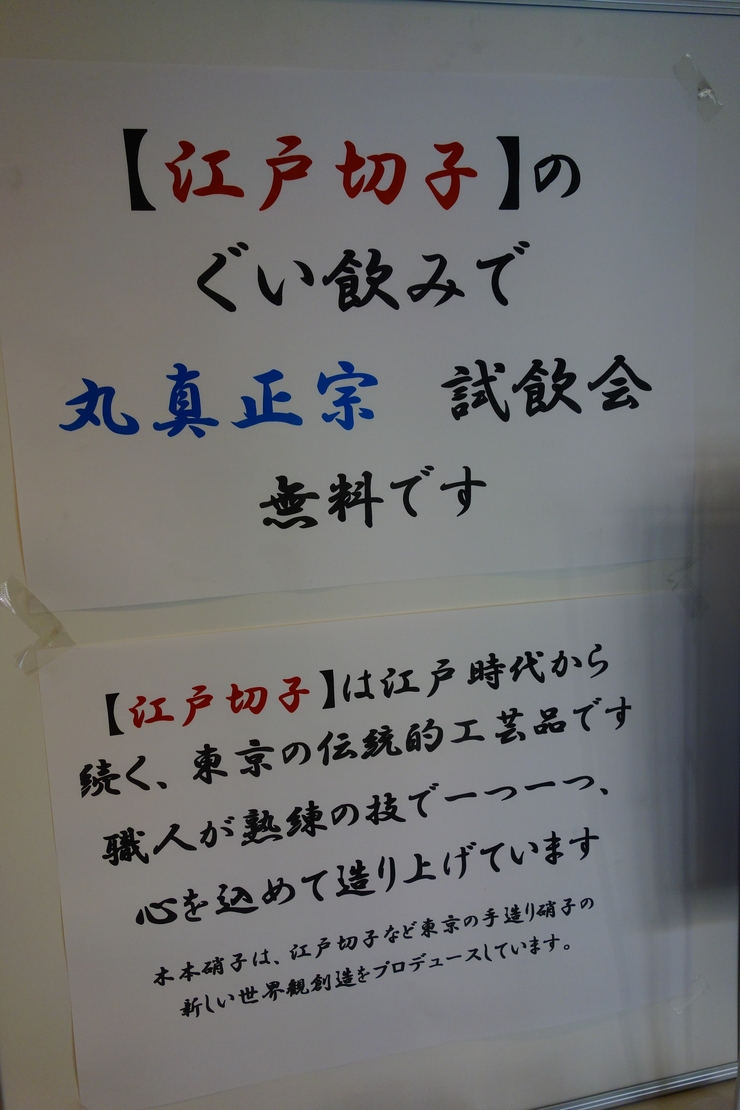 【江戸切子】の
ぐい飲みで
丸真正宗　試飲会
無料です
【江戸切子】は江戸時代から
続く、東京の伝統的工芸品です
職人が熟練の技で一つ一つ、
心を込めて造り上げています
木本硝子は、江戸切子など東京の手造り硝子の
新しい世界観創造をプロデュースしています。